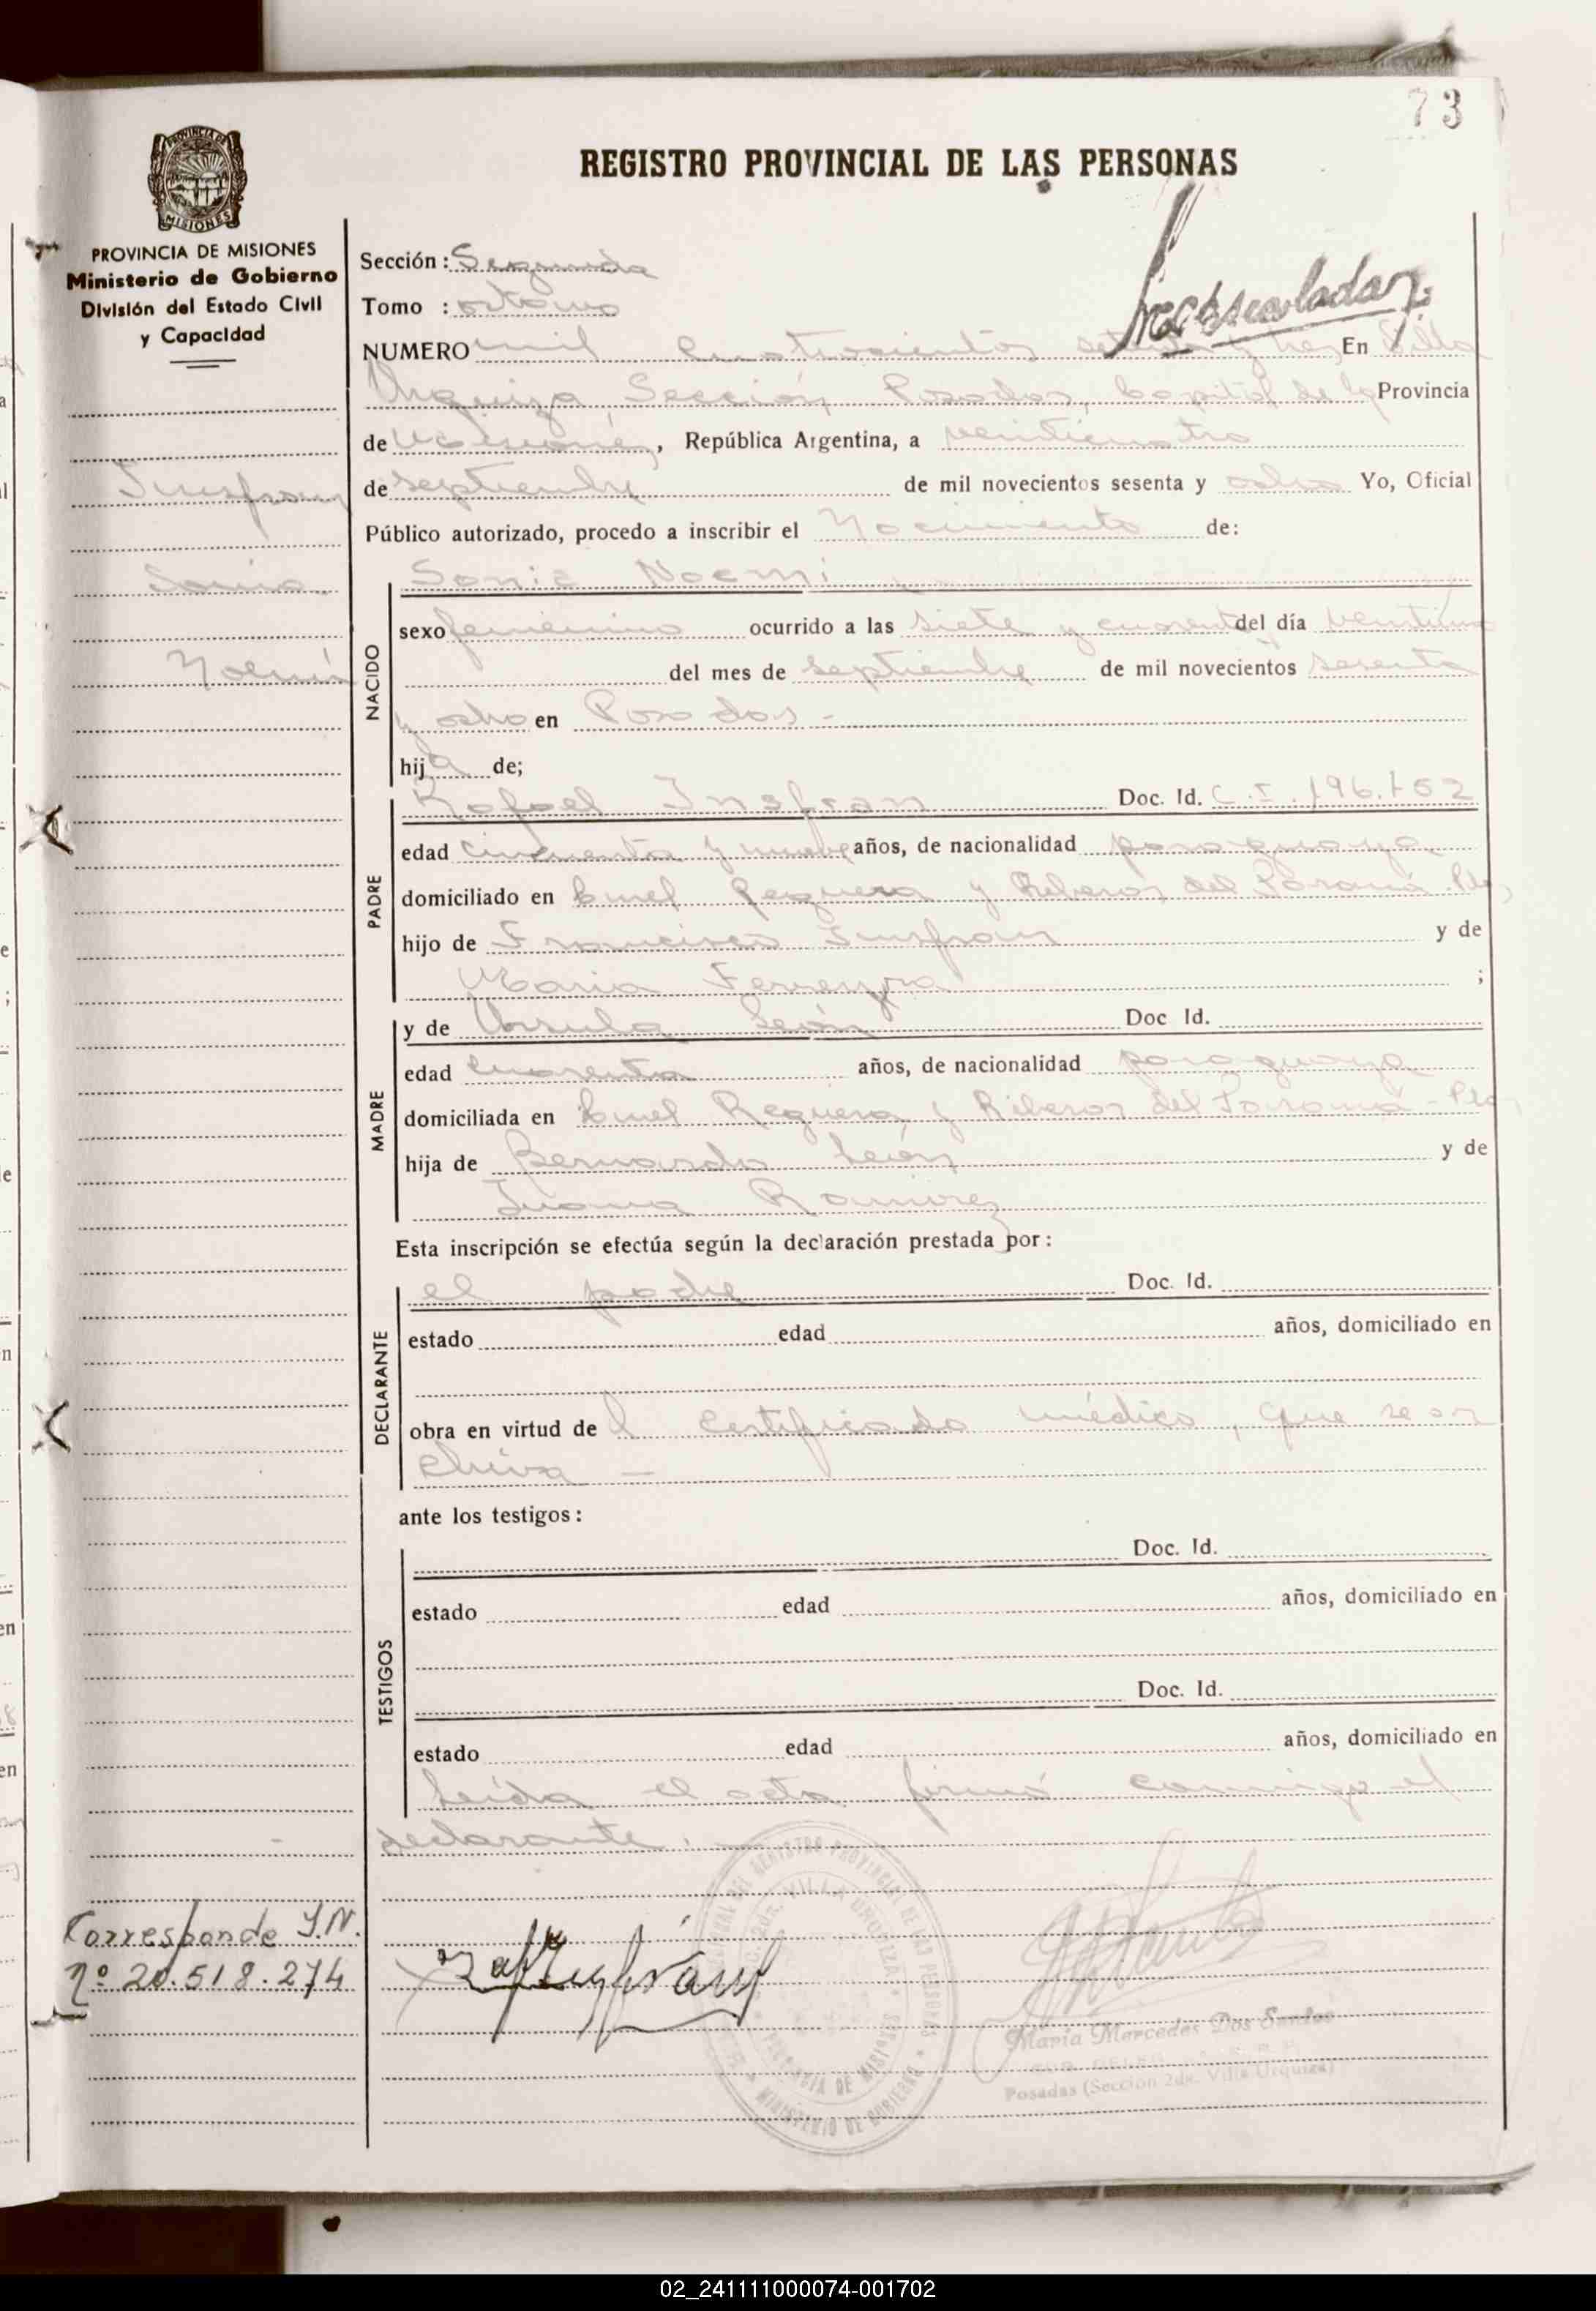 73
REGISTRO PROVINCIAL DE LAS PERSONAS
PROVINCIA DE MISIONES
PROVINCIA DE MISIONES
Ministerio de Gobierno
División del Estado Civil
y Capacidad
Insfran
Sonia
Noemí
Sección: Segunda
Tomo : octavo
NUMERO mil cuatrocientos setenta y tres, En Villa
Urquiza, Sección Posadas, Capital de la Provincia
de Misiones, República Argentina, a veinticuatro
de septiembre de mil novecientos sesenta y ocho Yo, Oficial
Público autorizado, procedo a inscribir el Nacimiento de:
NACIDO
Sonia Noemi
sexo femenino ocurrido a las siete y cuarenta del día veintiuno
del mes de septiembre de mil novecientos sesenta
y ocho en Posadas -
hija de;
PADRE
Rafael Insfran Doc. Id. C.I. 196.152
edad cincuenta y nueve años, de nacionalidad paraguaya
domiciliado en Cnel Reguera y Riberas del Paraná - Pdas
hijo de Francisco Insfran y de
Maria Ferreyra ;
MADRE
y de Ursula León Doc Id.
edad cuarenta años, de nacionalidad paraguaya
domiciliada en Cnel Reguera y Riberas del Paraná - Pdas
hija de Bernardo León y de
Juana Ramirez
Esta inscripción se efectúa según la declaración prestada por:
DECLARANTE
el padre Doc. Id.
estado edad años, domiciliado en
obra en virtud del certificado médico, que se ar
chiva -
ante los testigos:
TESTIGOS
Doc. Id.
estado edad años, domiciliado en
Doc. Id.
estado edad años, domiciliado en
Leída el acta firmó conmigo el
declarante.
Corresponde I.N.
Nº 20.518.274
VILLA URQUIZA
PROVINCIA DE MISIONES
MINISTERIO DE GOBIERNO
María Mercedes Dos Santos
Posadas (Sección 2da. Villa Urquiza)
02_241111000074-001702